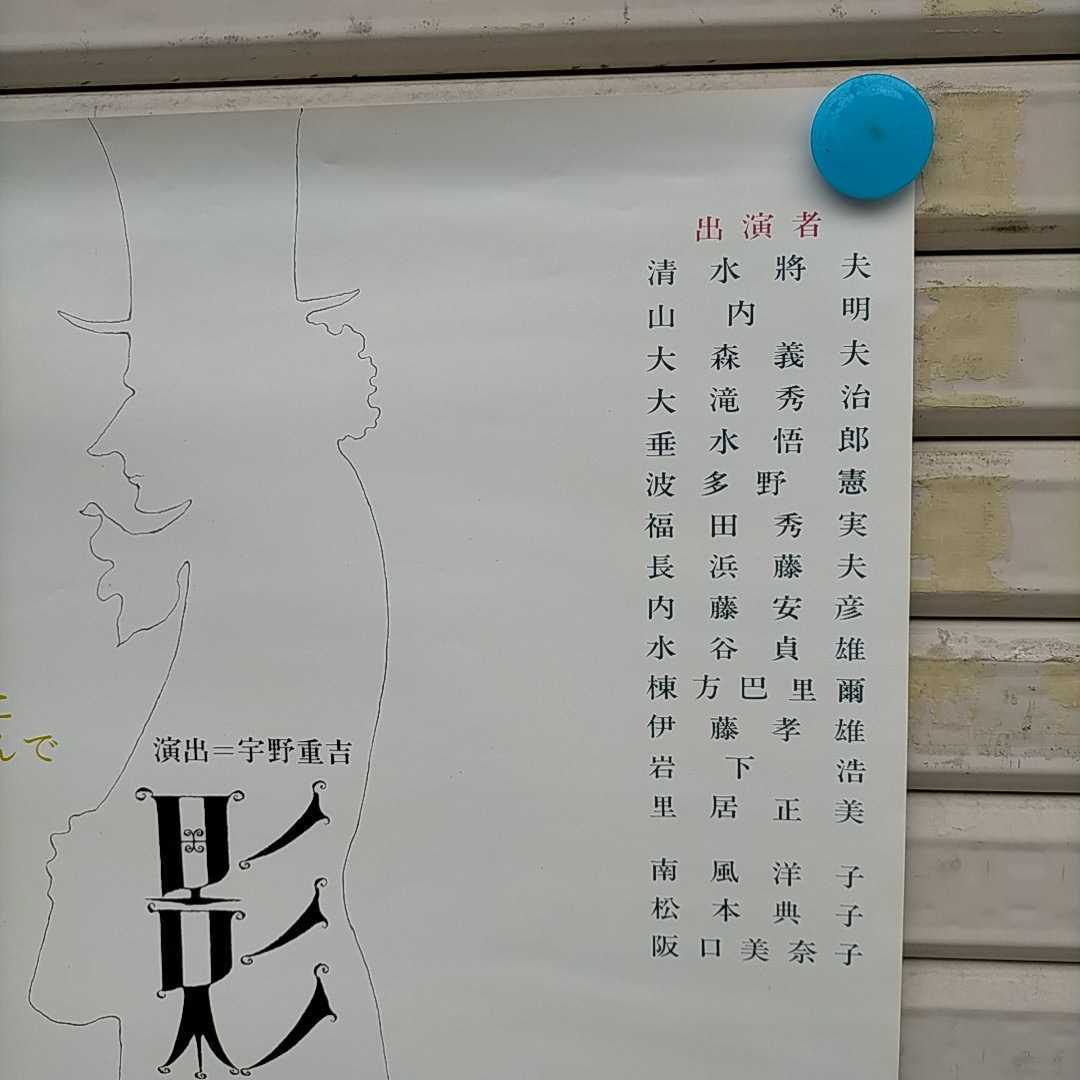 出演者
清水將夫
山内明
大森義夫
大滝秀治
垂水悟郎
波多野憲
福田秀実
長浜藤夫
内藤安彦
水谷貞雄
棟方巴里爾
伊藤孝雄
岩下浩
里居正美
南風洋子
松本典子
阪口美奈子
んで
演出=宇野重吉
影